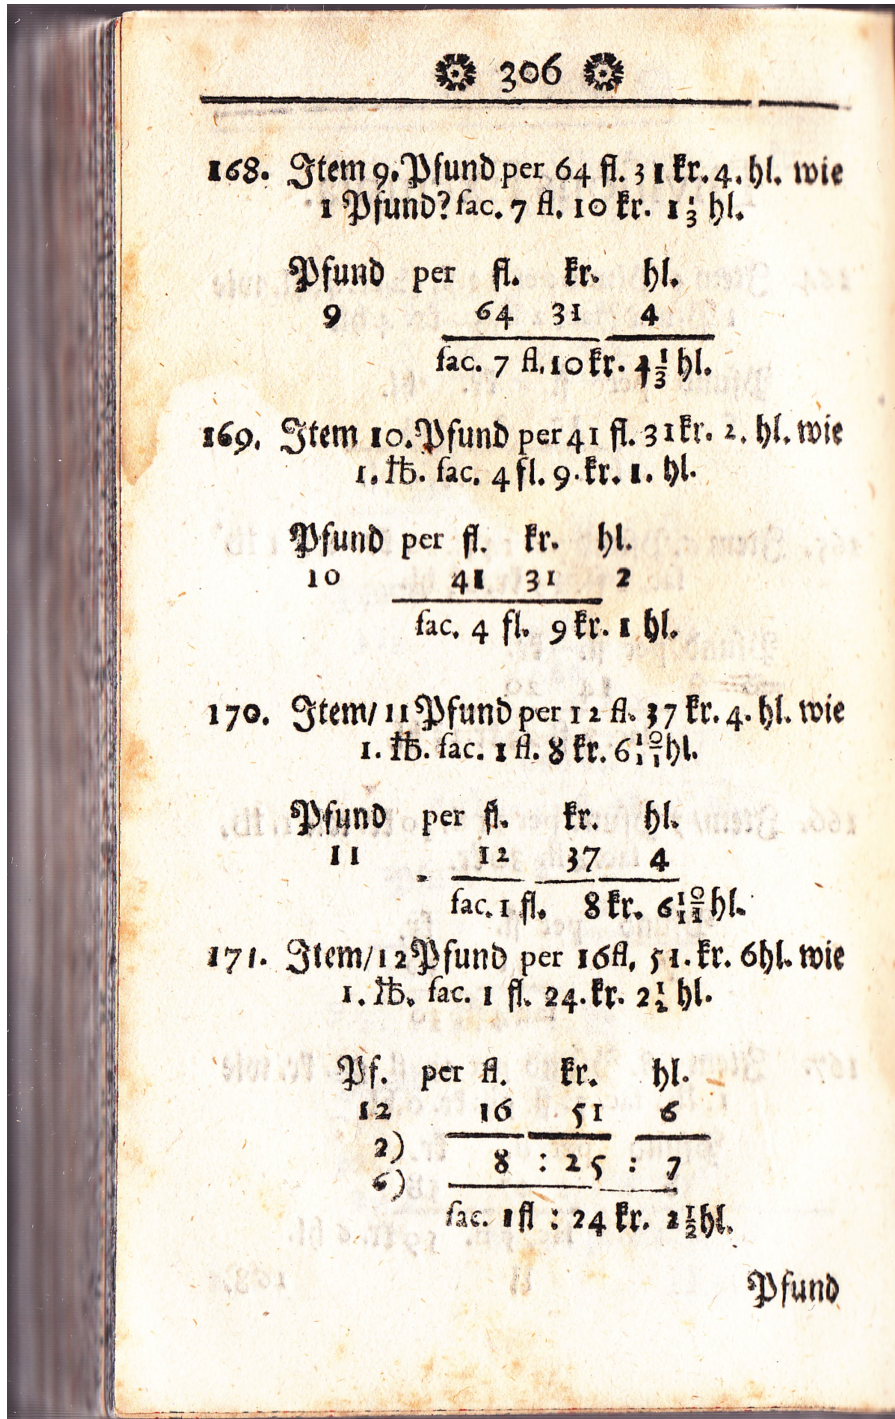 306
168. Item 9. Pfund per 64 fl. 31 kr. 4. hl. wie
1 Pfund? fac. 7 fl. 10 kr. 1⅓ hl.
Pfund per fl. kr. hl.
9 64 31 4
fac. 7 fl. 10 kr. 4⅓ hl.
169. Item 10. Pfund per 41 fl. 31 kr. 2. hl. wie
1. ℔. fac. 4 fl. 9. kr. 1. hl.
Pfund per fl. kr. hl.
10 41 31 2
fac. 4 fl. 9 kr. 1 hl.
170. Item/ 11 Pfund per 12 fl. 37 kr. 4. hl. wie
1. ℔. fac. 1 fl. 8 kr. 6 10/11 hl.
Pfund per fl. kr. hl.
11 12 37 4
fac. 1 fl. 8 kr. 6 10/11 hl.
171. Item/ 12 Pfund per 16 fl. 51. kr. 6 hl. wie
1. ℔. fac. 1 fl. 24. kr. 2½ hl.
Pf. per fl. kr. hl.
12 16 51 6
2) 8 : 25 : 7
6)
fac. 1 fl : 24 kr. 2½ hl.
Pfund